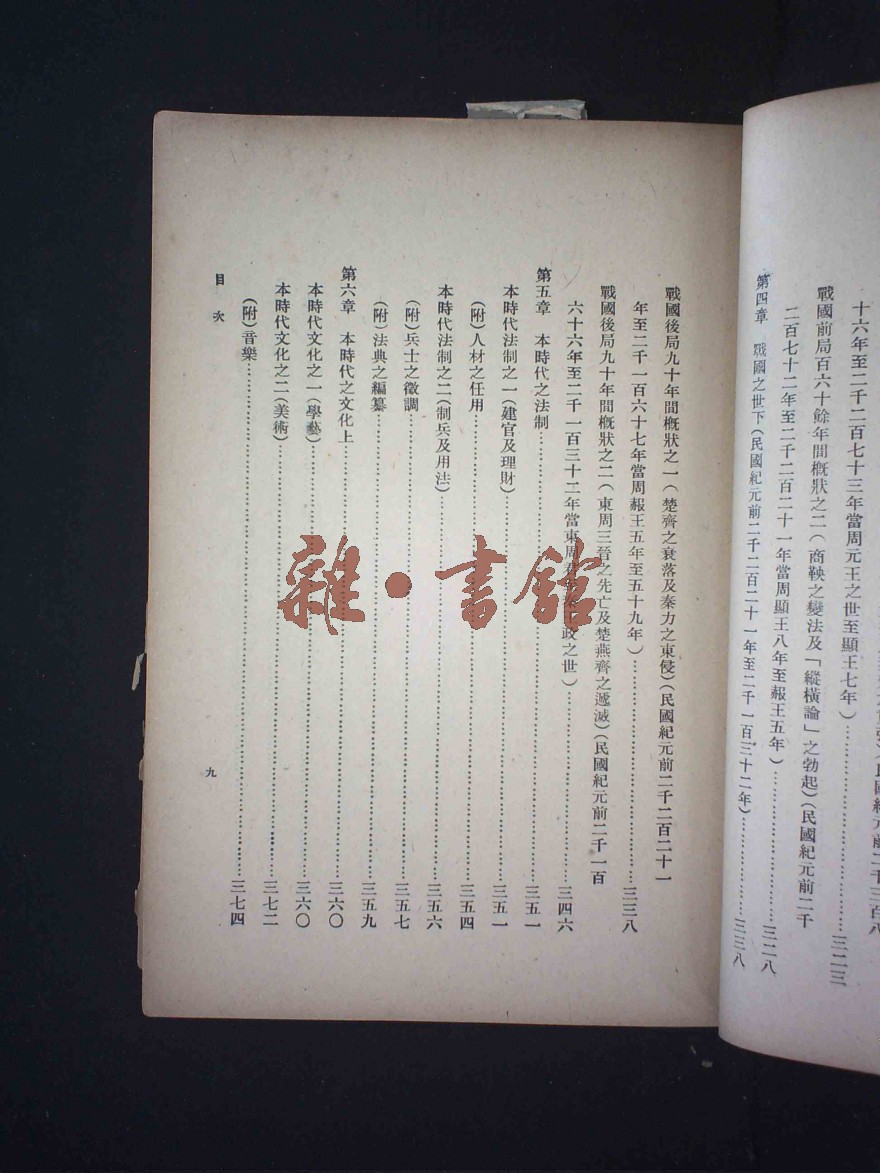 十六年至二千二百七十三年當周元王之世至顯王七年）……三二三
戰國前局百六十餘年間概狀之二（商鞅之變法及「縱橫論」之勃起）（民國紀元前二千
二百七十二年至二千二百二十一年當周顯王八年至赧王五年）……三二八
第四章　戰國之世下（民國紀元前二千二百二十一年至二千一百三十二年）……三三八
戰國後局九十年間概狀之一（楚齊之衰落及秦力之東侵）（民國紀元前二千二百二十一
年至二千一百六十七年當周赧王五年至五十九年）……三三八
戰國後局九十年間概狀之二（東周三晉之先亡及楚燕齊之遞滅）（民國紀元前二千一百
六十六年至二千一百三十二年當東周君政之世）……三四六
第五章　本時代之法制……三五一
本時代法制之一（建官及理財）……三五一
（附）人材之任用……三五四
本時代法制之二（制兵及用法）……三五六
（附）兵士之徵調……三五七
（附）法典之編纂……三五九
第六章　本時代之文化上……三六〇
本時代文化之一（學藝）……三六〇
本時代文化之二（美術）……三七二
（附）音樂……三七四
目次
九
雜·書館